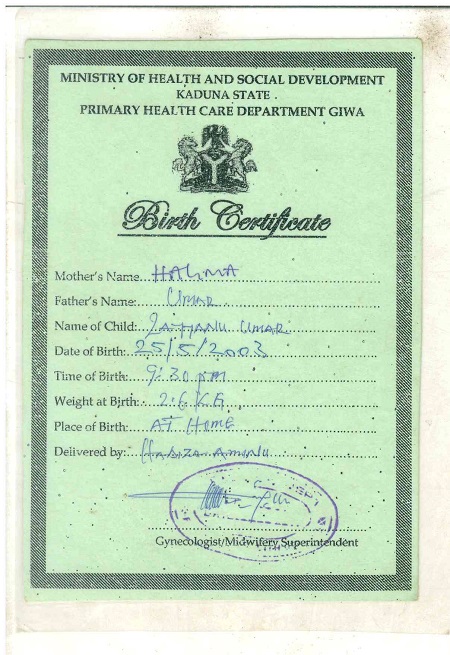 MINISTRY OF HEALTH AND SOCIAL DEVELOPMENT
KADUNA STATE.
PRIMARY HEALTH CARE DEPARTMENT GIWA
Birth Certificate
Mother's Name HALIMA
Father's Name: UMAR
Name of Child: UMAR
Date of Birth: 25/5/2003
Time of Birth: 9:30 pm
Weight at Birth: 2.6 KG
Place of Birth: AT HOME
Delivered by: AMINU
Gynecologist/Midwifery Superintendent